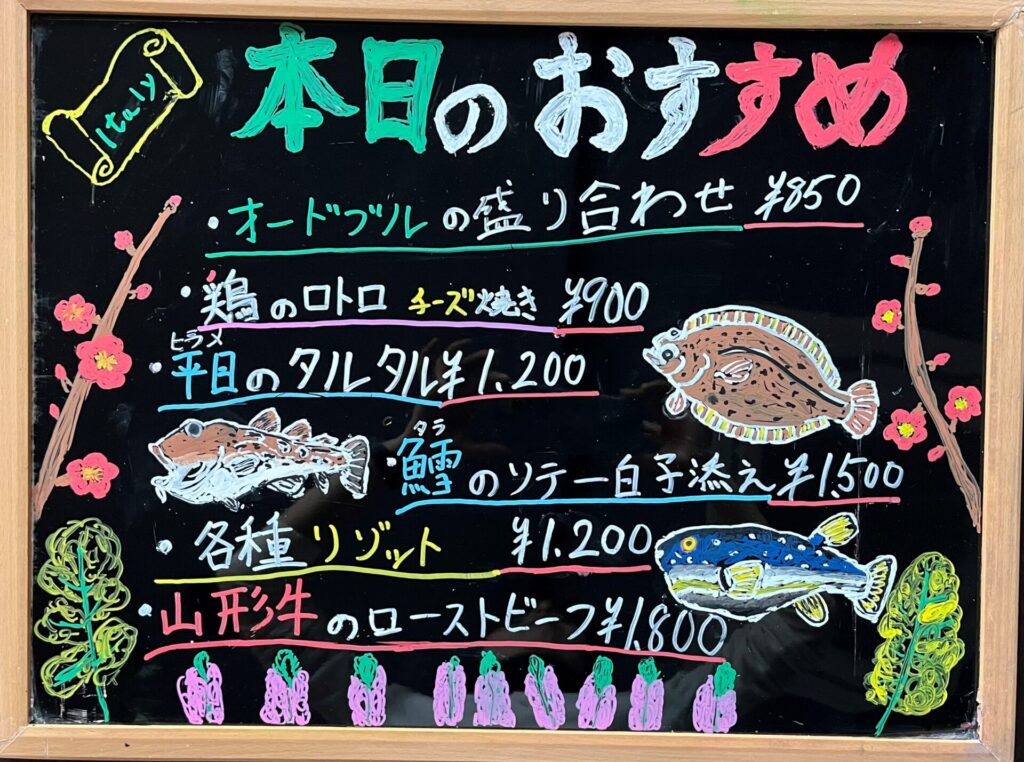 Italy
本日のおすすめ
・オードブルの盛り合わせ ¥850
・鶏のロトロ チーズ焼き ¥900
ヒラメ
・平目のタルタル ¥1.200
タラ
・鱈のソテー白子添え ¥1.500
・各種リゾット ¥1.200
・山形牛のローストビーフ ¥1.800